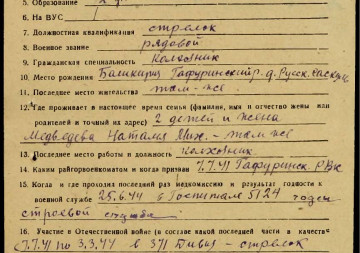 5. Образование 2 кл.
6. На ВУС
7. Должностная квалификация стрелок
8. Военное звание рядовой
9. Гражданская специальность Колхозник
10. Место рождения Башкирия Гафурийский р. д. Русск.
11. Последнее место жительства там-же
12. Где проживает в настоящее время семья (фамилия, имя и отчество жены или
родителей и точный их адрес) 2 детей и жена
Медведева Наталья Мих. - там же
13. Последнее место работы и должность колхозник
14. Каким райгорвоенкоматом и когда призван 7.7.41 Гафуринск. РВк
15. Когда и где проходил последний раз медкомиссию и результат годности к
военной службе 25.6.44 в Госпитале 5124 годен
строевой служба
16. Участие в Отечественной войне (в составе какой последней части и в качестве
с 7.7.41 по 3.3.44 в 371 Дивиз - стрелок